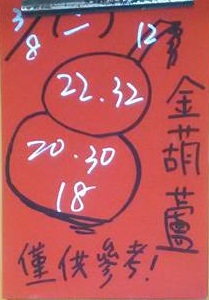 3/8 (二)
12
22.32
20.30
18
金葫蘆
僅供參考!